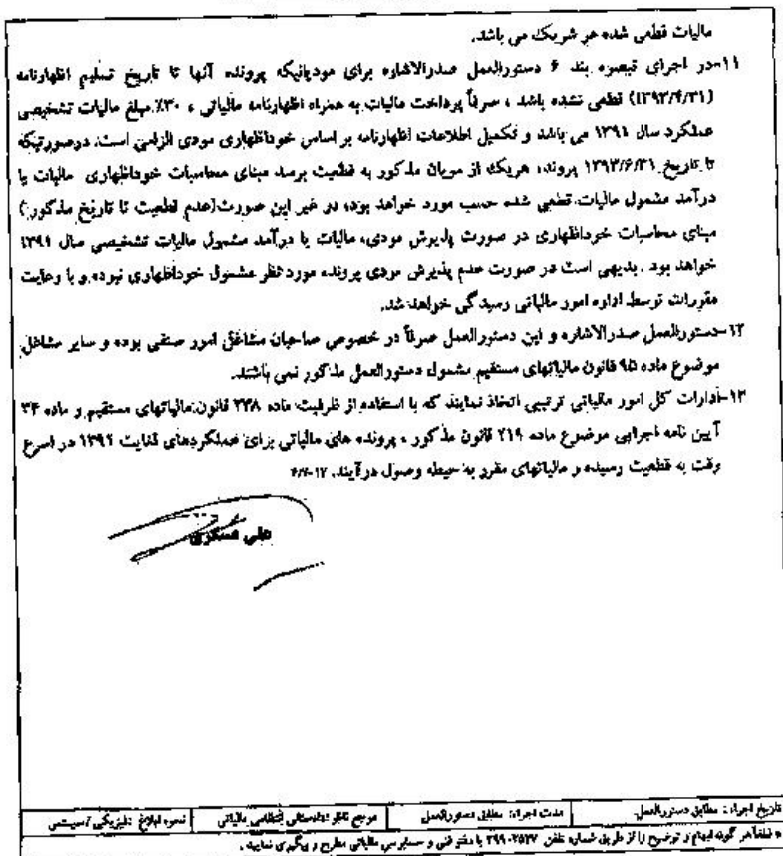 مالیات قطعی شده هر شریک می باشد.
۱۱-در اجرای تبصره بند ۶ دستورالعمل صدرالاشاره برای مودیانیکه پرونده آنها تا تاریخ تسلیم اظهارنامه
(۱۳۹۳/۴/۳۱) قطعی نشده باشد ، صرفاً پرداخت مالیات به همراه اظهارنامه مالیاتی ، ۳۰٪ مبلغ مالیات تشخیصی
عملکرد سال ۱۳۹۱ می باشد و تکمیل اطلاعات اظهارنامه بر اساس خوداظهاری مودی الزامی است. درصورتیکه
تا تاریخ ۱۳۹۳/۶/۳۱ پرونده هریک از مودیان مذکور به قطعیت برسد مبنای محاسبات خوداظهاری مالیات یا
درآمد مشمول مالیات قطعی شده حسب مورد خواهد بود، در غیر این صورت(عدم قطعیت تا تاریخ مذکور)
مبنای محاسبات خوداظهاری در صورت پذیرش مودی، مالیات یا درآمد مشمول مالیات تشخیصی سال ۱۳۹۱
خواهد بود . بدیهی است در صورت عدم پذیرش مودی پرونده مورد نظر مشمول خوداظهاری نبوده و با رعایت
مقررات توسط اداره امور مالیاتی رسیدگی خواهد شد.
۱۲-دستورالعمل صدرالاشاره و این دستورالعمل صرفاً در خصوص صاحبان مشاغل امور صنفی بوده و سایر مشاغل
موضوع ماده ۹۵ قانون مالیاتهای مستقیم مشمول دستورالعمل مذکور نمی باشند.
۱۳-ادارات کل امور مالیاتی ترتیبی اتخاذ نمایند که با استفاده از ظرفیت ماده ۲۳۸ قانون مالیاتهای مستقیم و ماده ۳۴
آیین نامه اجرایی موضوع ماده ۲۱۹ قانون مذکور ، پرونده های مالیاتی برای عملکردهای لغایت ۱۳۹۲ در اسرع
وقت به قطعیت رسیده و مالیاتهای مقرر به حیطه وصول درآیند.
علی عسکری
تاریخ اجراء: مطابق دستورالعمل مدت اجراء: مطابق دستورالعمل مرجع ناظر: دادستانی انتظامی مالیاتی نحوه ابلاغ: فیزیکی / سیستمی
* لطفاً هر گونه ابهام و توضیح را از طریق شماره تلفن ۳۹۹۰۲۵۲۷ با دفتر فنی و حسابرسی مالیاتی مطرح و پیگیری نمایید .